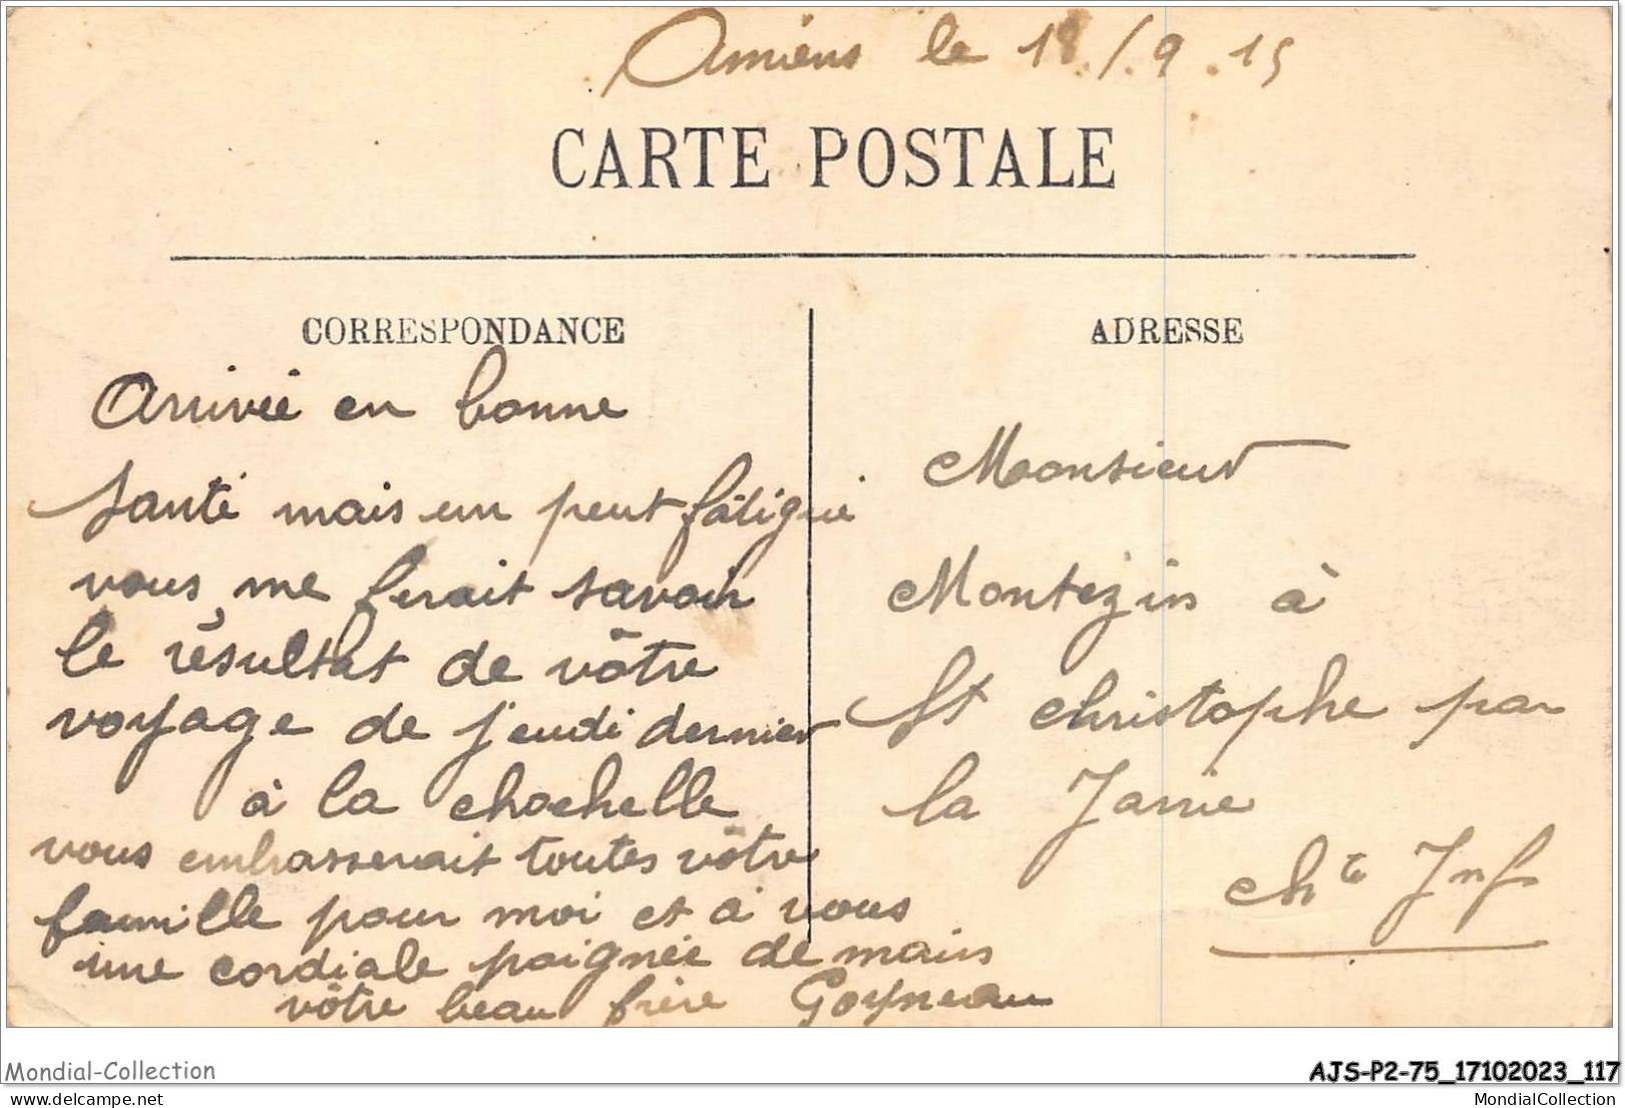 Amiens le 18/9.15
CARTE POSTALE
CORRESPONDANCE
Arrivée en bonne
Santé mais un peut fâtigué
vous me ferait savoir
le résultat de vôtre
voyage de jeudi dernier
à la chochelle
vous embrasserait toutes vôtre
famille pour moi et à vous
une cordiale poignée de mains
vôtre beau frère Goyneau
ADRESSE
Monsieur
Montézin à
St christophe par
la Jarrie
chte Inf
Mondial-Collection
AJS-P2-75_17102023_117
delcampe.net
MondialCollection